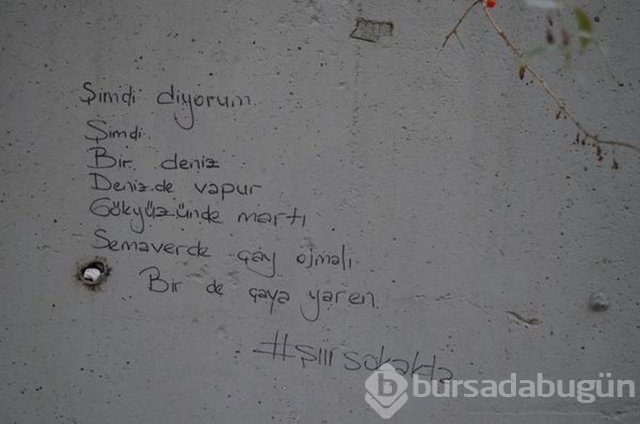 Şimdi diyorum
Şimdi.
Bir deniz
Denizde vapur
Gökyüzünde martı
Semaverde çay olmalı
Bir de çaya yaren
#şiirsokakta
bursadabugün